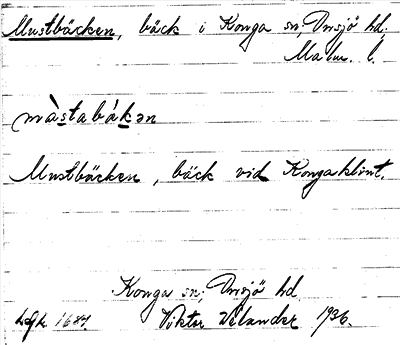 Mustbäcken, bäck i Konga sn, Onsjö hd,
Malm. l.
màstabák̲ən
Mustbäcken, bäck vid Kongaklint.
Konga sn, Onsjö hd
Viktor Welander 1936.